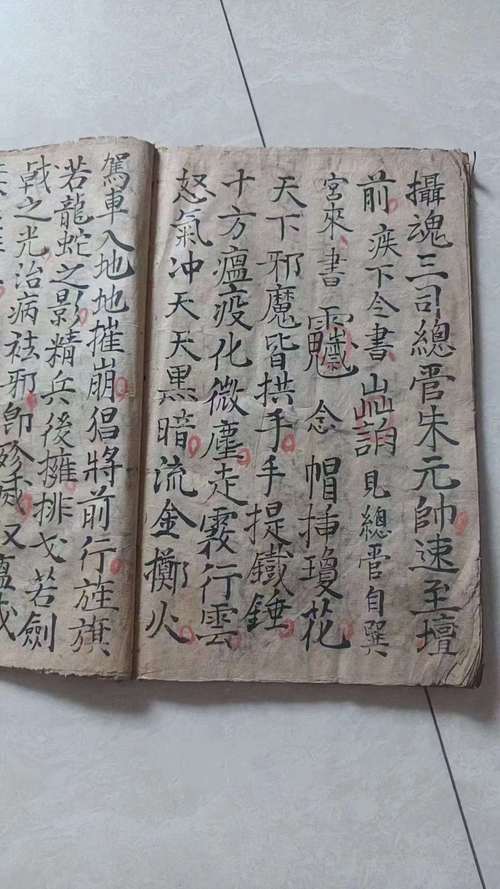 攝魂三司總管朱元帥速至壇
前疾下令書見總管自巽
宮來書念帽插瓊花
天下邪魔皆拱手手提鐵錘
十方瘟疫化微塵走霧行雲
怒氣冲天天黑暗流金擲火
駕車入地地摧崩猖將前行旌旗
若龍蛇之影精兵後擁排戈若劍
戟之光治病祛邪即殄滅